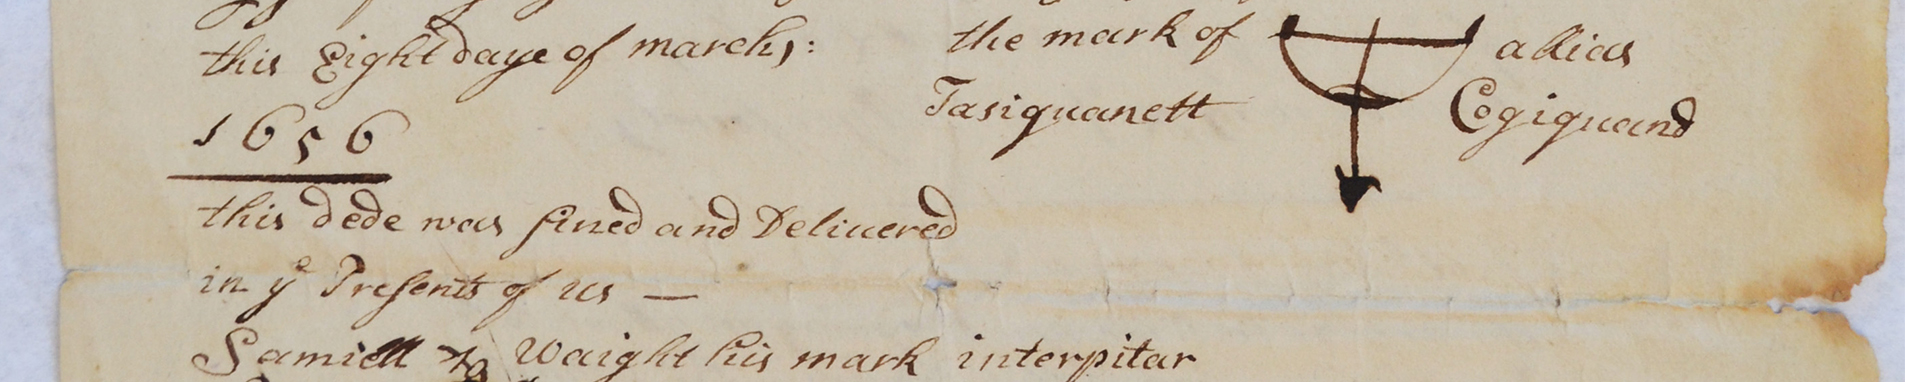 this Eight daye of march;: the mark of allias
Tasiquanett Cogiquand
1656
this dede was sined and Deliuered
in ye Presents of us —
Samiell Waight his mark interpitar